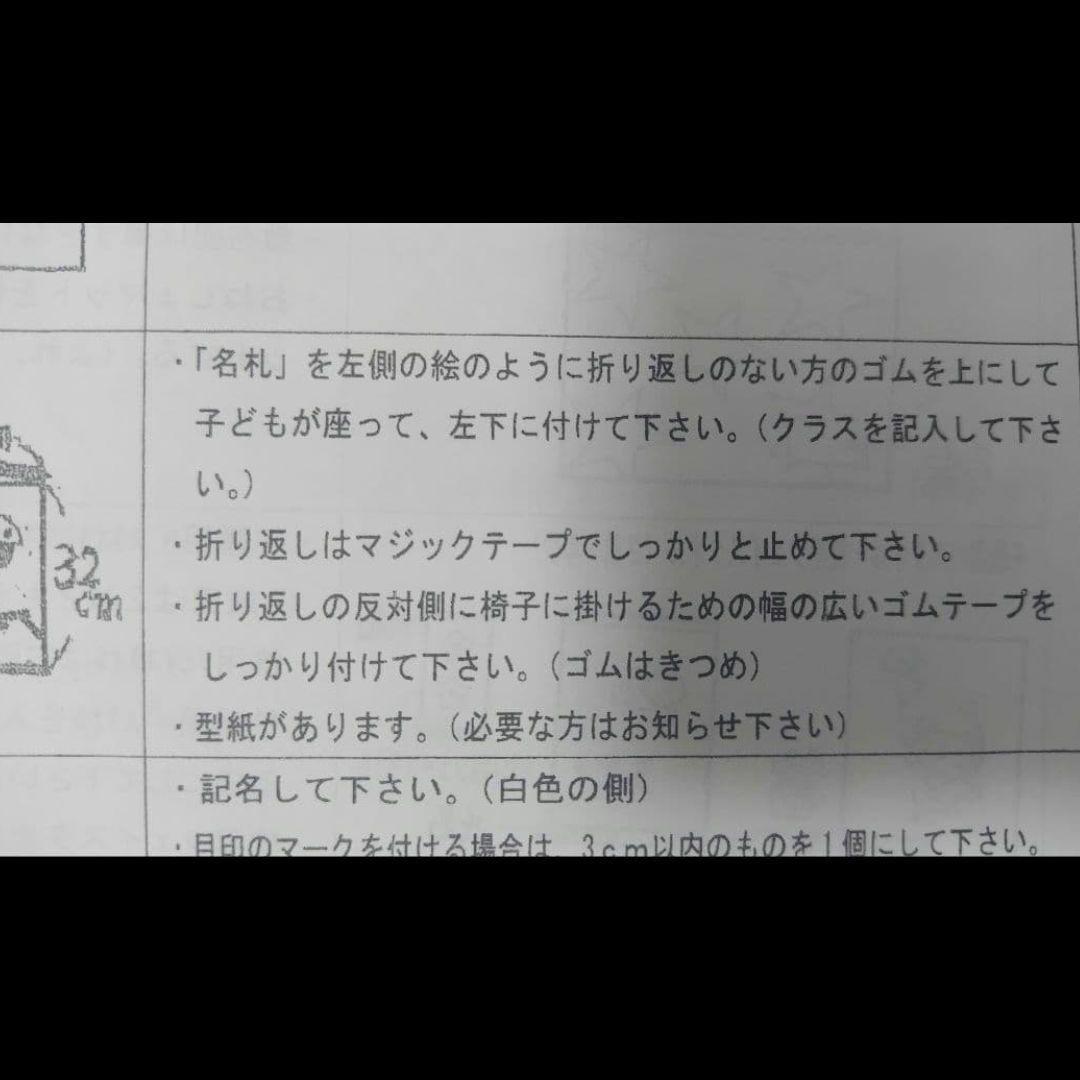 ・「名札」を左側の絵のように折り返しのない方のゴムを上にして
子どもが座って、左下に付けて下さい。（クラスを記入して下さ
い。）
・折り返しはマジックテープでしっかりと止めて下さい。
32
cm
・折り返しの反対側に椅子に掛けるための幅の広いゴムテープを
しっかり付けて下さい。（ゴムはきつめ）
・型紙があります。（必要な方はお知らせ下さい）
・記名して下さい。（白色の側）
・目印のマークを付ける場合は、3cm以内のものを1個にして下さい。